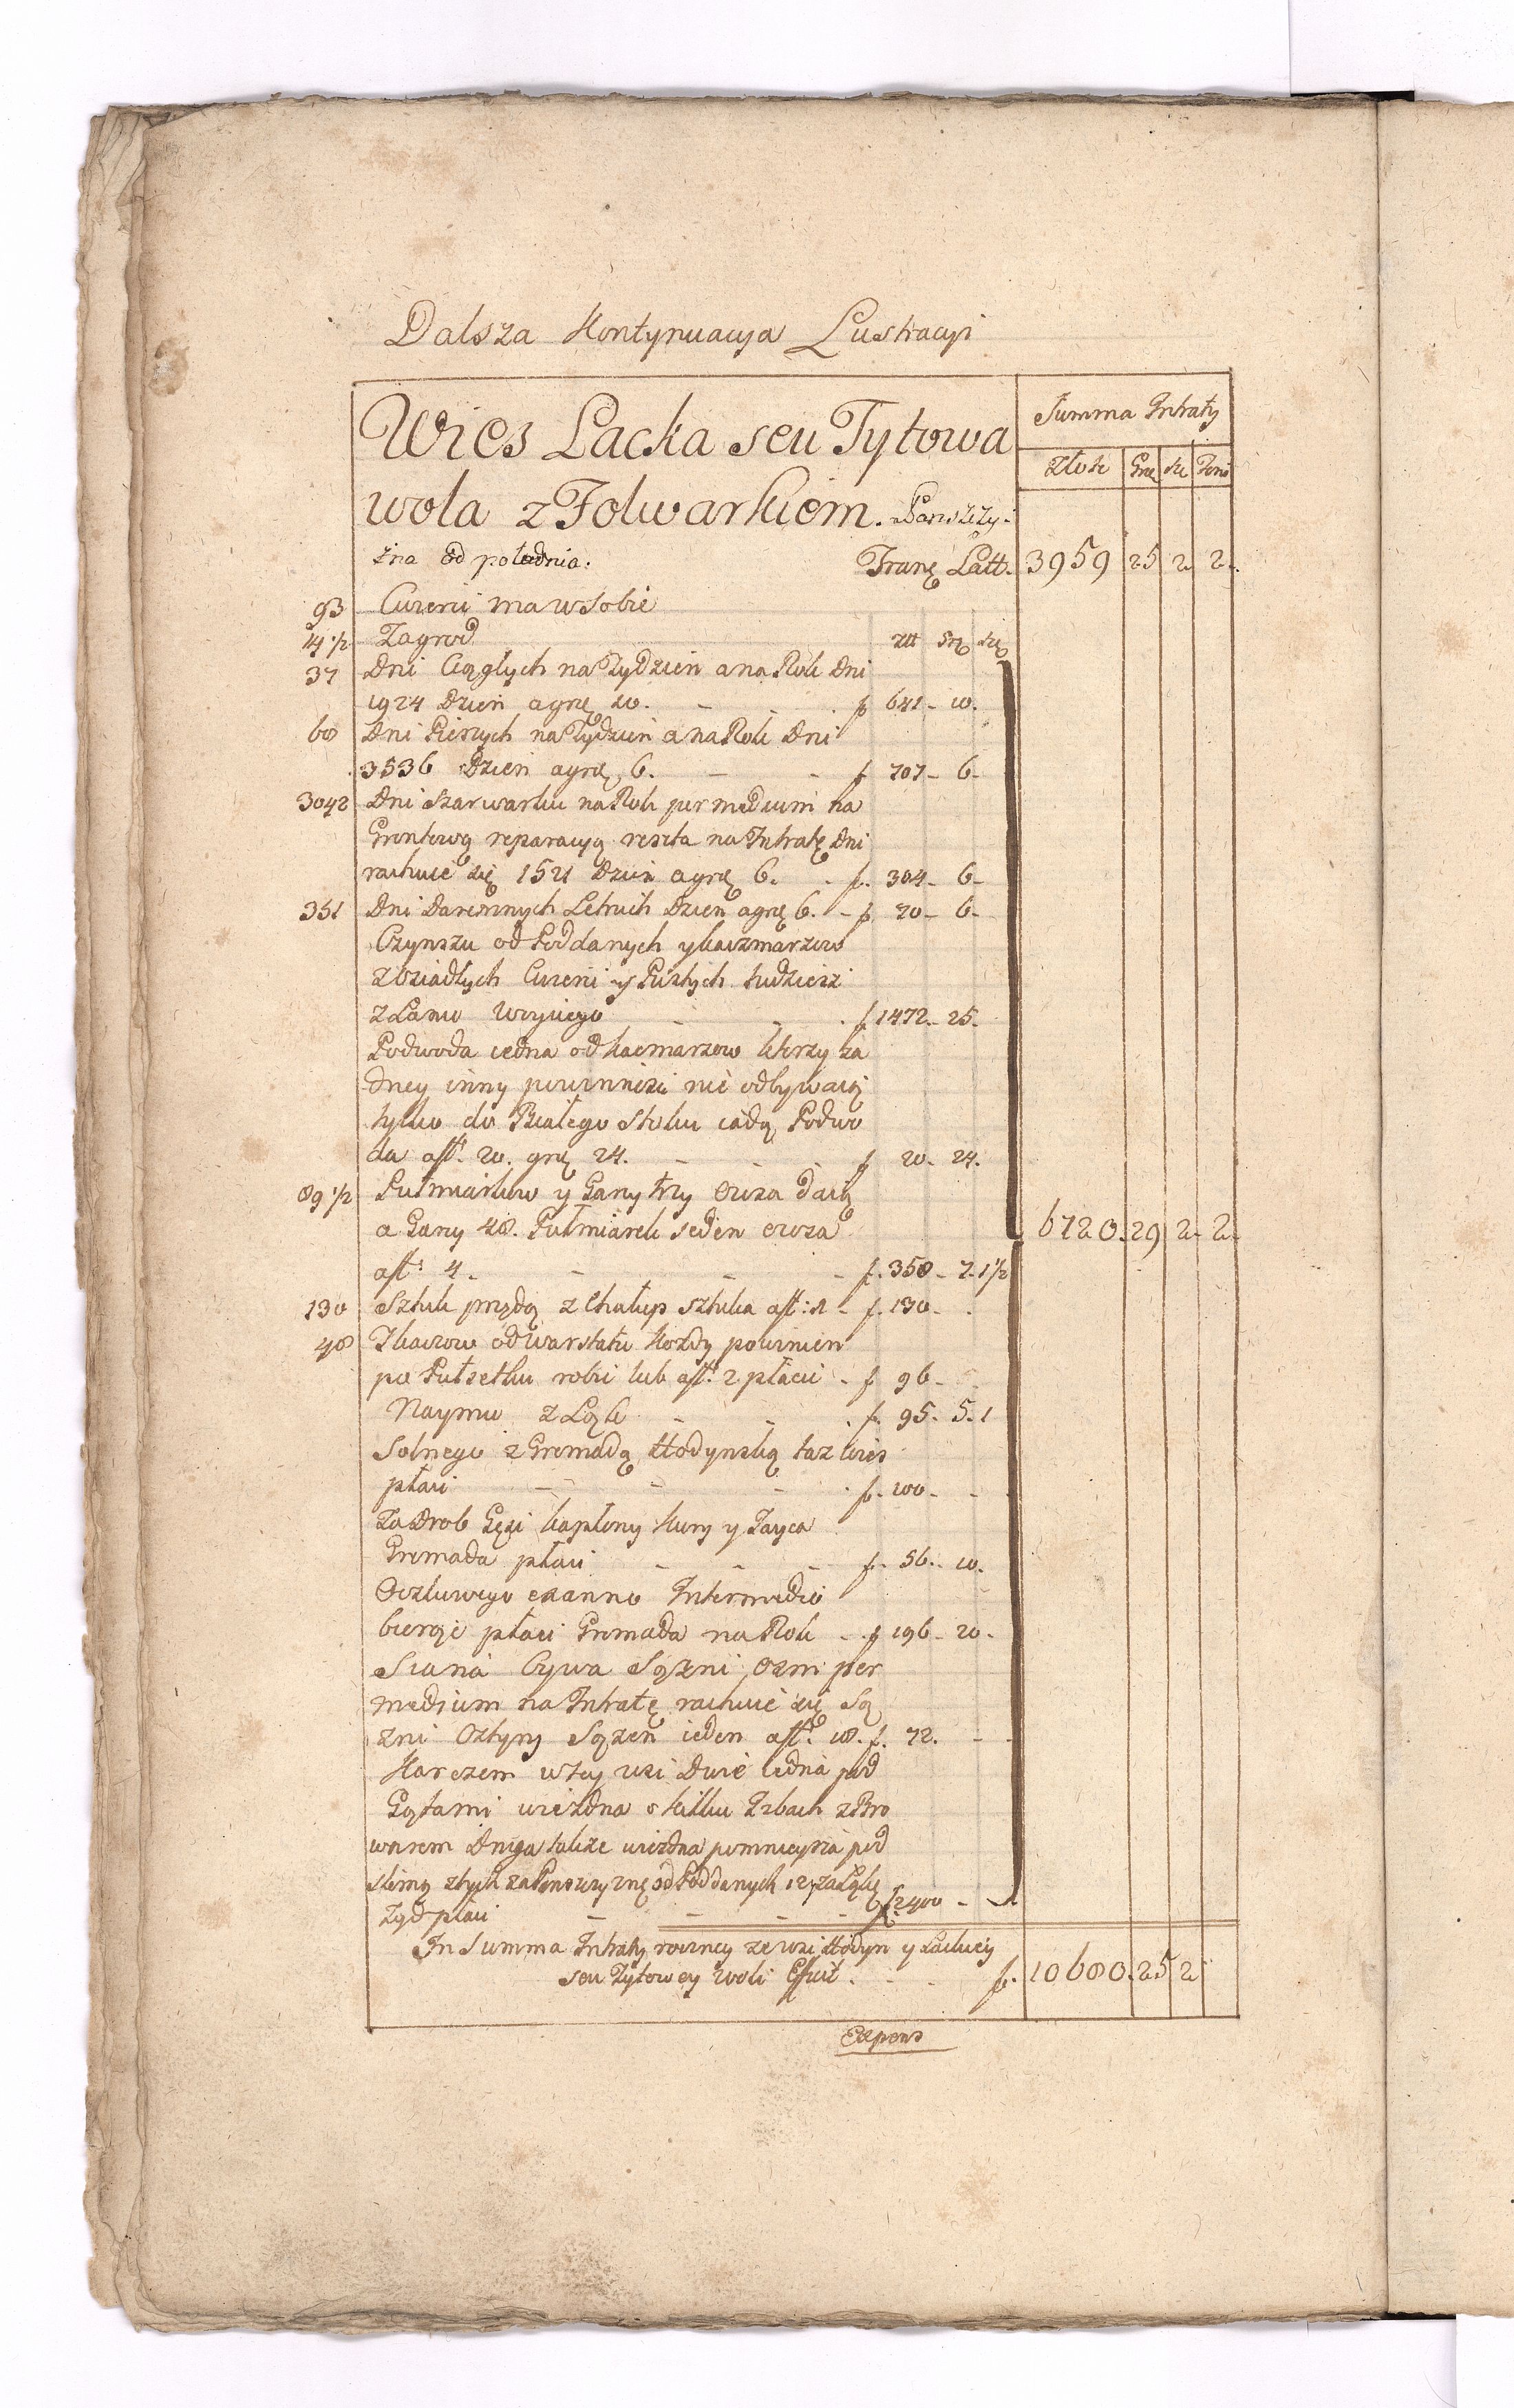 Dalsza Kontynuacya Lustracyi
Wies Lacka seu Tytowa
Summa Intraty
Złote Grz Sze
wola z Folwarkiem. Panszczy:
zna od południa. Latt. 3959 25 2 2.
93 Curerii ma w sobie
14 1/2 Zagrod złł grz sze
37 Dni Ciągłych na Tydzien a na Rok Dni
1924 Dzien a grz 10. f 641 - 10.
68 Dni Pieszych na Tydzien a na Rok Dni
3536 Dzien a grz. 6. f. 707 - 6 -
3042 Dni Szarwarku na Rok per medium na
Grontową reparacyą reszta na Intratę Dni
rachuie się 1521 Dzien a grz 6. f. 304 - 6 -
351 Dni Daremnych Letnich Dzien a grz 6. - f. 70 - 6 -
Czynszu od Poddanych y Kaczmarzow
z Osiadłych Curerii y Pustych tudziesz
z Łanu Woyciego f. 1472 - 25.
Podwoda iedna od Kacmarzow ktorzy ża
dney inny powinnosci nie odbywaią
tylko do Białego Stoku iadą Podwo
da a fł. 20. grz 24. f 20 - 24.
89 1/2 Pułmiarkow y Gary trzy Owsa daią
a Gary 48. Pułmiarek ieden owsa 6720. 29 2 - 2 -
a fł: 4. f. 358 - 7. 1 1/2
130 Sztuk przędą z Chałup sztuka a fł: 1 - f. 130 - .
48 Tkaczow od warstatu kozdy powinien
po Pułsetku robić lub a fł: 2 płacić - f 96 -
Naymu z Łąk f. 95. 5. 1
Solnego z Gromadą Kłodynską taz wies
płaci f. 100 -
Za Drob Gęsi kapłony kury y Jayca
Gromada płaci f. 56. - 10.
Oczkowego ex anno Intermedio
bieroje płaci Gromada na Rok - f 196 - 20 -
Siana bywa Sązni Osm per
medium na Intratę rachuie się Są
zni Cztyry Sązen ieden a fł. 18. f. 72. - -
Karczem w tey wsi Dwie iedna pod
Gątami wiezdna o kilku Izbach z Bro
warem Druga takze wiezdna pomnieysza pod
słomą z tych za od Poddanych
Zyd płaci f. 2400 -
In Summa Intraty rocznej ze wsi Kłodyn y Lackiey
seu Tytowey woli Efficit. f. 10680. 25 2
Expens